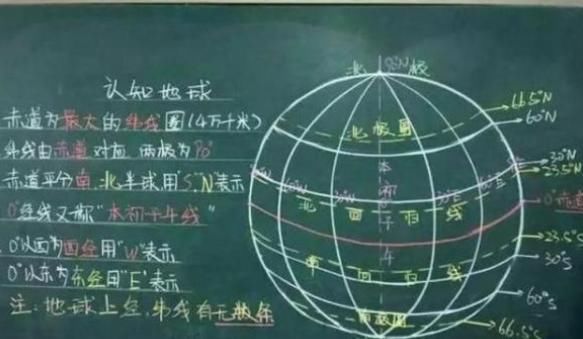 认知地球
赤道为最大的纬线圈(4万千米)
纬线由赤道对应 两极为90°
赤道平分南、北半球用"S""N"表示
0°经线又称"本初子午线"
0°以西为西经用"W"表示
0°以东为东经用"E"表示
注:地球上经、纬线有无数条
北 90°N 极
66.5°N
60°N
北极圈
30°N
23.5°N
本初子午
北回归线
0°赤道
23.5°S
30°S
南回归线
60°S
南极圈
66.5°S